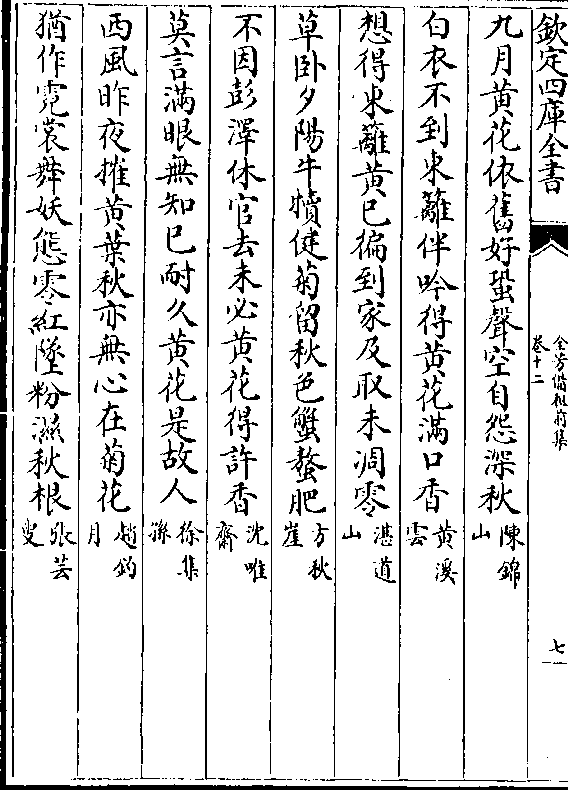 欽定四庫全書
全芳備祖前集
卷十二
七
九月黄花依舊好蛩聲空自怨深秋陳錦山
白衣不到東籬伴吟得黄花滿口香黄溪雲
想得東籬黄已徧到家及取未凋零湛道山
草卧夕陽牛犢健菊留秋色蟹螯肥方秋崖
不因彭澤休官去未必黄花得許香沈唯齋
莫言滿眼無知已耐久黄花是故人徐集孫
西風昨夜摧黄葉秋亦無心在菊花趙釣月
猶作霓裳舞妖態零紅墜粉滋秋根張芸叟